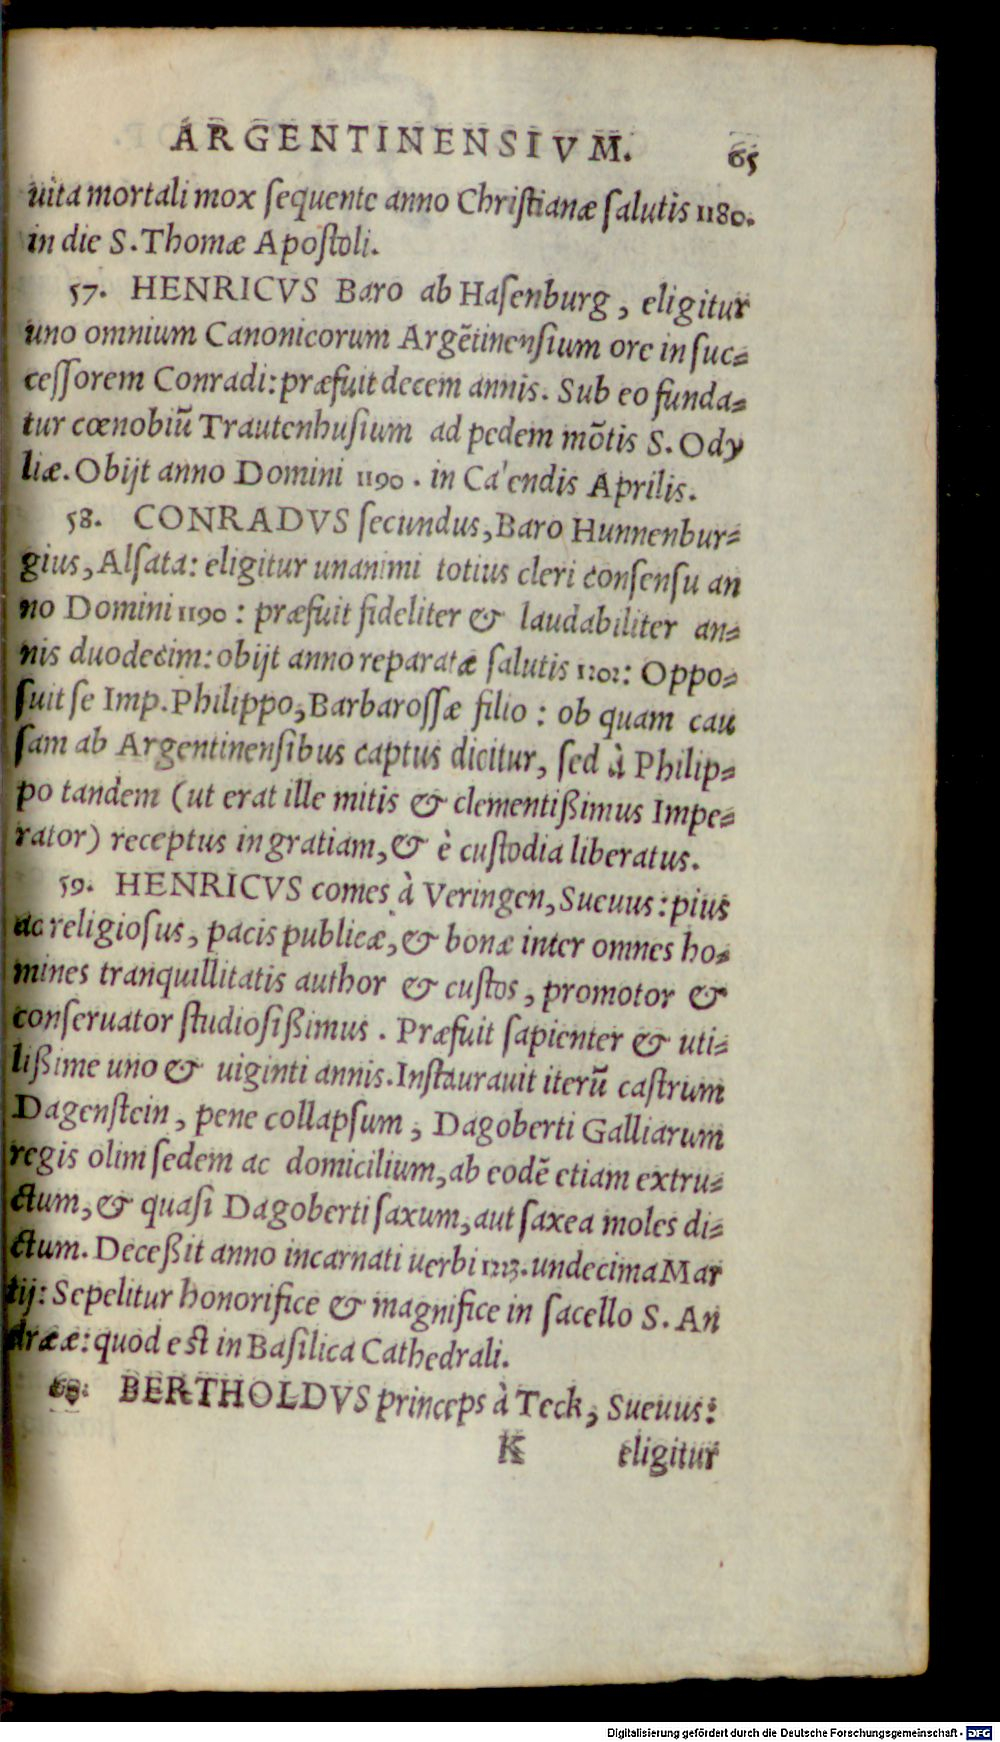 ARGENTINENSIVM. 65
uita mortali mox ſequente anno Chriſtianæ ſalutis 1180.
in die S. Thomæ Apoſtoli.
57. HENRICVS Baro ab Haſenburg, eligitur
uno omnium Canonicorum Argẽtinenſium ore in ſuc=
ceſſorem Conradi: præfuit decem annis. Sub eo funda=
tur cœnobiũ Trautenhuſium ad pedem mõtis S. Ody
liæ. Obijt anno Domini 1190. in Ca'endis Aprilis.
58. CONRADVS ſecundus, Baro Hunnenbur=
gius, Alſata: eligitur unanimi totius cleri conſenſu an
no Domini 1190: præfuit fideliter & laudabiliter an=
nis duodecim: obijt anno reparatæ ſalutis 1202: Oppo=
ſuit ſe Imp. Philippo, Barbaroſſæ filio: ob quam cau
ſam ab Argentinenſibus captus dicitur, ſed à Philip=
po tandem (ut erat ille mitis & clementißimus Impe=
rator) receptus in gratiam, & è cuſtodia liberatus.
59. HENRICVS comes à Veringen, Sueuus: pius
ac religioſus, pacis publicæ, & bonæ inter omnes ho=
mines tranquillitatis author & cuſtos, promotor &
conſeruator ſtudioſißimus. Præfuit ſapienter & uti=
lißime uno & uiginti annis. Inſtaurauit iterũ caſtrum
Dagenſtein, pene collapſum, Dagoberti Galliarum
regis olim ſedem ac domicilium, ab eodẽ etiam extru=
ctum, & quaſi Dagoberti ſaxum, aut ſaxea moles di=
ctum. Deceßit anno incarnati uerbi 1223. undecima Mar
tij: Sepelitur honorifice & magnifice in ſacello S. An
dreæ: quod eſt in Baſilica Cathedrali.
60. BERTHOLDVS princeps à Teck, Sueuus:
K eligitur
Digitalisierung gefördert durch die Deutsche Forschungsgemeinschaft - DFG